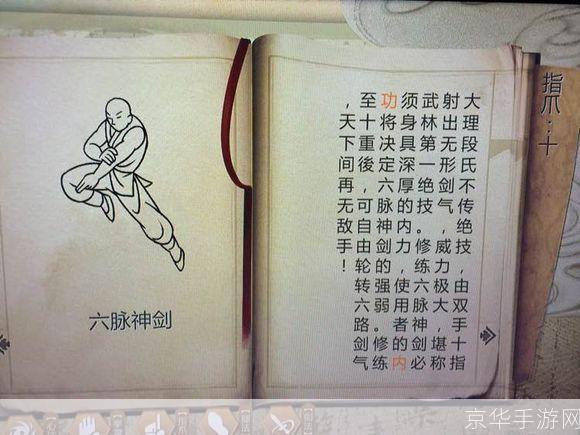 指爪：十
大理段氏不传绝技，由双手十指
射出无形剑气，威力极大，堪称
武林第一绝技。修练六脉神剑必
须身具深厚的内力，使用者的内
功将决定六脉神剑的强弱。修练
至十重後，可自由轮转六路剑气
，天下间再无敌手！
六脉神剑
京华手游网